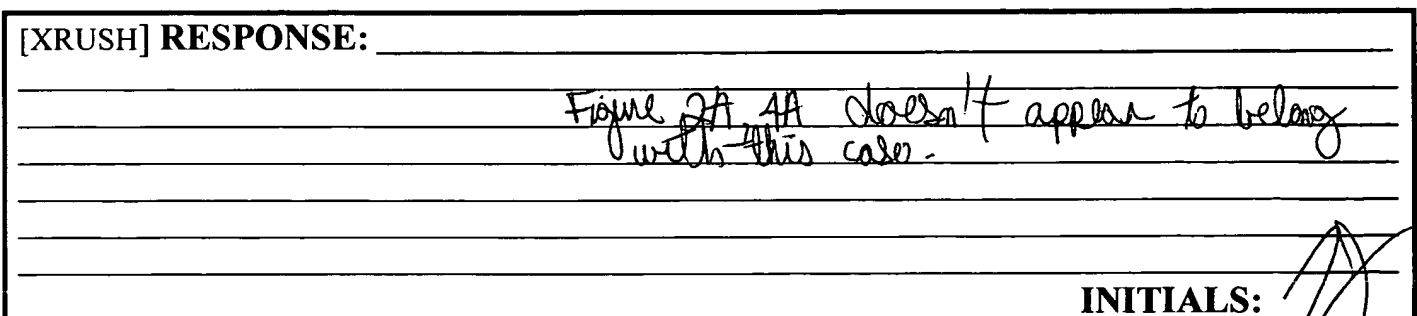 [XRUSH] RESPONSE:
Figure 2A, 4A doesn't appear to belong
with this case.
INITIALS: